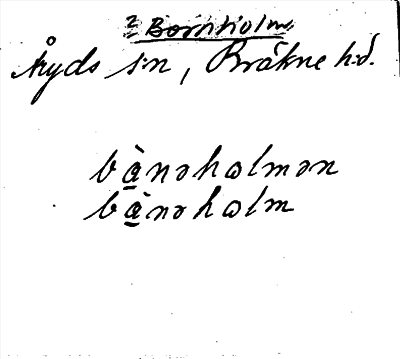 2 Bornholm
Åryds s:n, Bräkne h:d.
bànəhalmən
bànəhalm